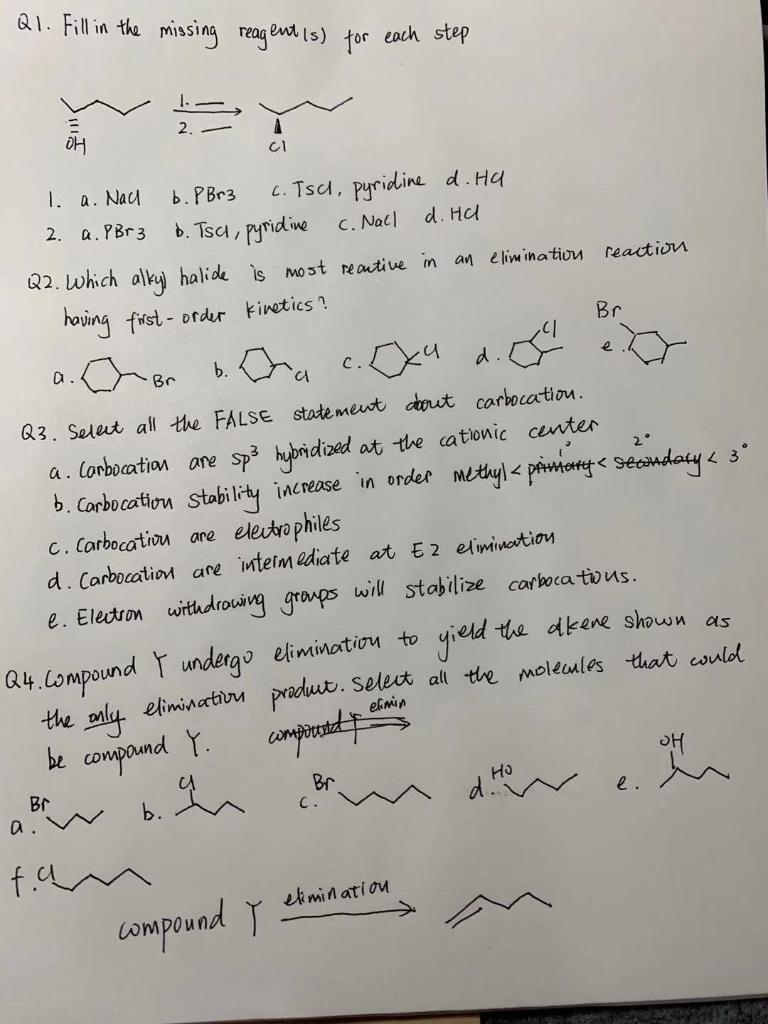 Q1. Fill in the missing reagent(s) for each step
1. —
2. —
OH
Cl
1. a. NaCl b. PBr3 c. TsCl, pyridine d. HCl
2. a. PBr3 b. TsCl, pyridine c. NaCl d. HCl
Q2. Which alkyl halide is most reactive in an elimination reaction
having first-order kinetics?
a. Br b. Cl c. Cl d. Cl e. Br
Q3. Select all the FALSE statement about carbocation.
a. Carbocation are sp3 hybridized at the cationic center
b. Carbocation stability increase in order methyl < primary 1° < secondary 2° < 3°
c. Carbocation are electrophiles
d. Carbocation are intermediate at E2 elimination
e. Electron withdrawing groups will stabilize carbocations.
Q4. Compound Y undergo elimination to yield the alkene shown as
the only elimination product. Select all the molecules that could
be compound Y. compound Y elimin
a. Br b. Cl c. Br d. HO e. OH
f. Cl
compound Y elimination